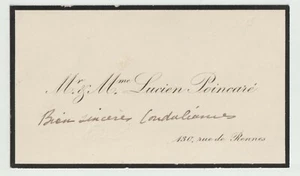 Mr & Mme Lucien Poincaré
Bien sincères Condoléances
130, rue de Rennes